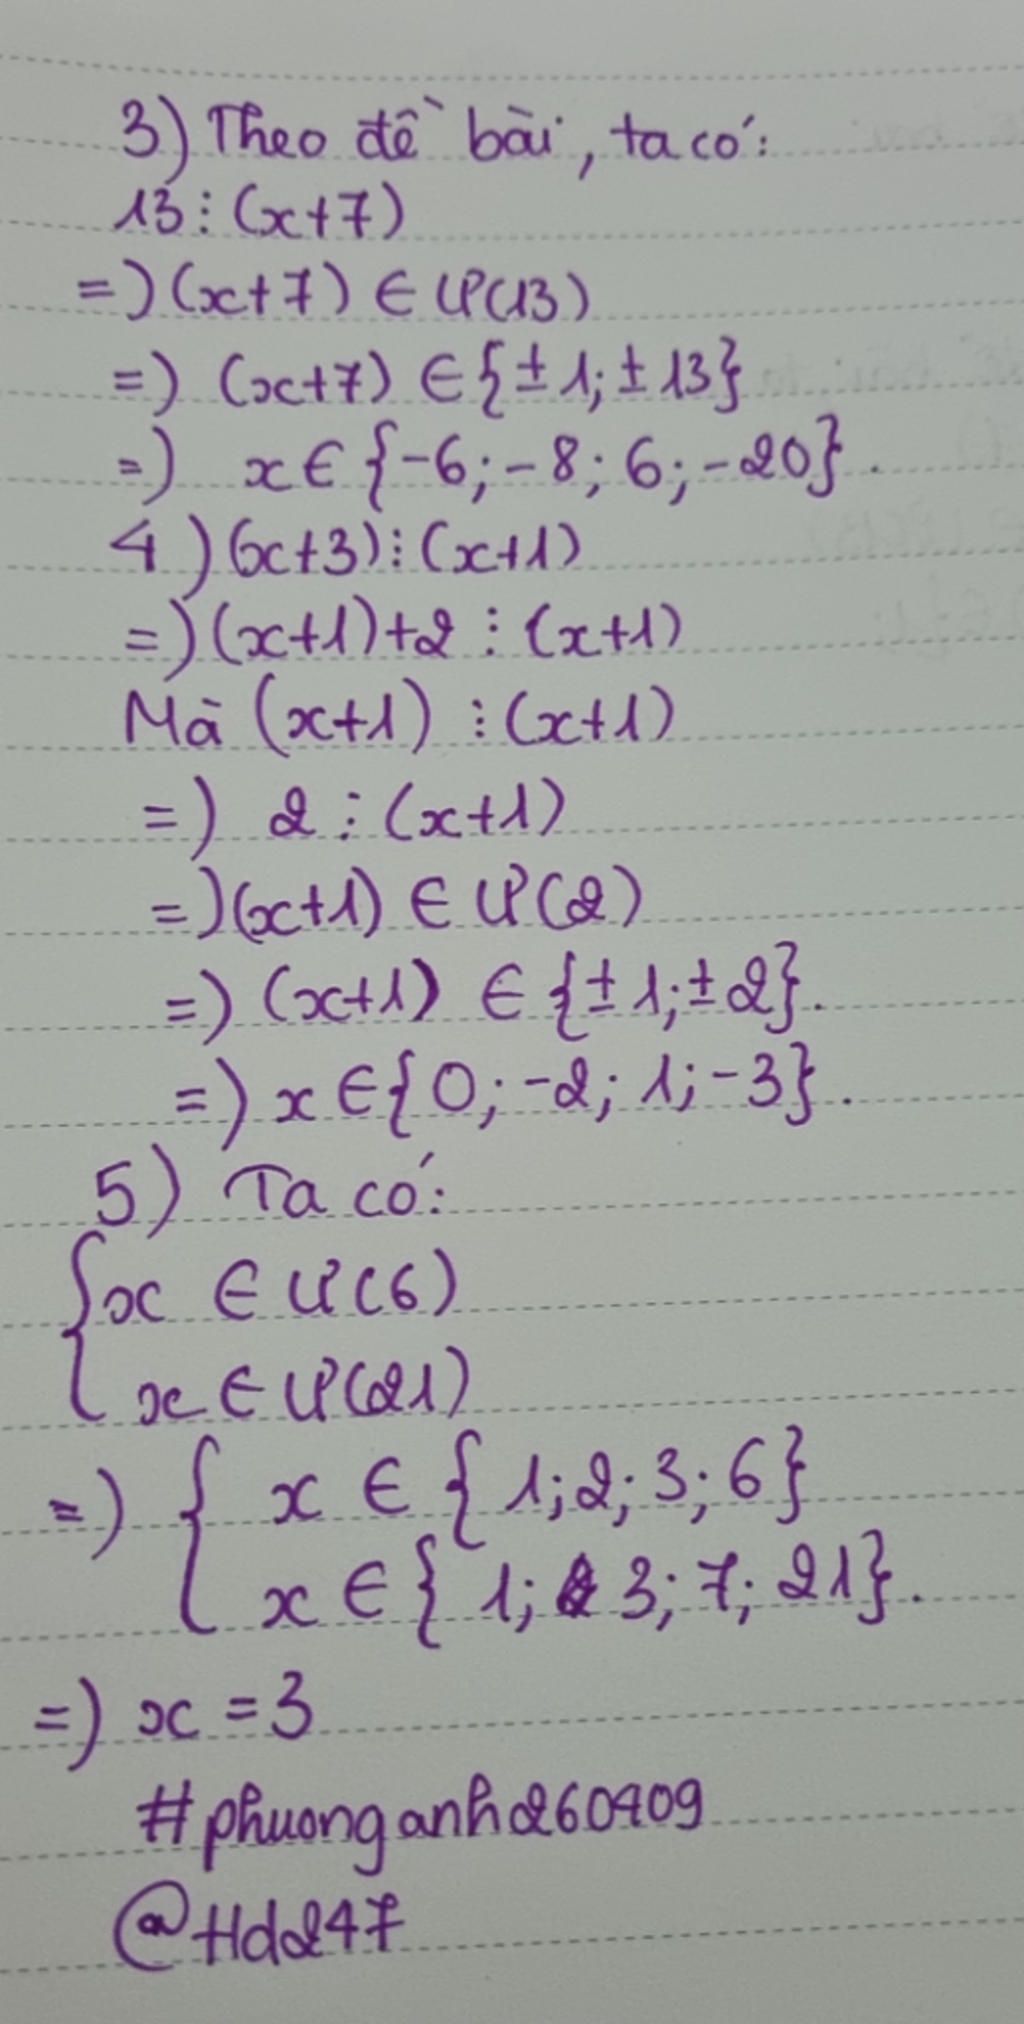 3) Theo đề bài, ta có:
13 ⋮ (x+7)
=) (x+7) ∈ Ư(13)
=) (x+7) ∈ {±1; ±13}
=) x ∈ {-6; -8; 6; -20}.
4) (x+3) ⋮ (x+1)
=) (x+1)+2 ⋮ (x+1)
Mà (x+1) ⋮ (x+1)
=) 2 ⋮ (x+1)
=) (x+1) ∈ Ư(2)
=) (x+1) ∈ {±1; ±2}.
=) x ∈ {0; -2; 1; -3}.
5) Ta có:
{ x ∈ Ư(6)
x ∈ Ư(21)
=) { x ∈ {1; 2; 3; 6}
x ∈ {1; 3; 7; 21}.
=) x = 3
#phuonganh260409
@Hd247